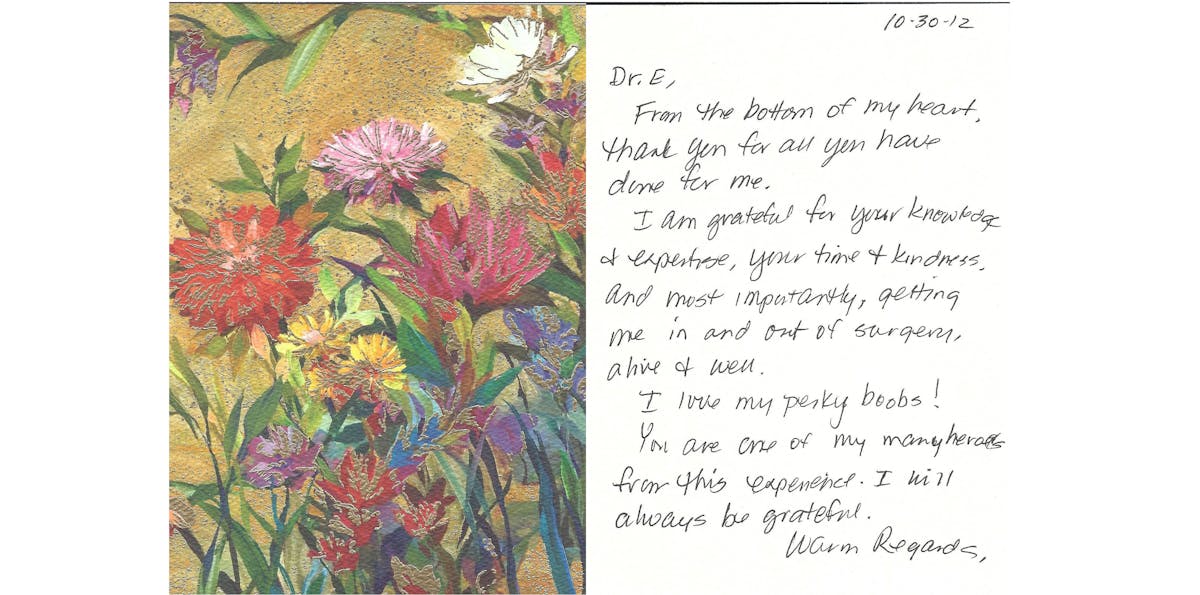 10-30-12
Dr. E,
From the bottom of my heart,
thank you for all you have
done for me.
I am grateful for your knowledge
& expertise, your time & kindness.
And most importantly, getting
me in and out of surgery,
alive & well.
I love my perky boobs!
You are one of my many heroes
from this experience. I will
always be grateful.
Warm Regards,